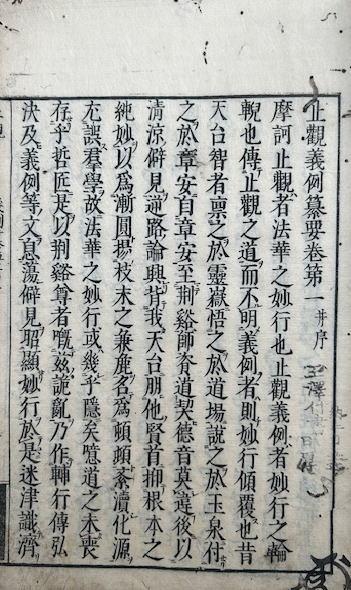 止觀義例纂要卷第一 并序
摩訶止觀者法華之妙行也止觀義例者妙行之輪
輗也傳止觀之道而不明義例者則妙行傾覆也昔
天台智者禀之於靈嶽悟之於道場說之於玉泉付
之於章安自章安至荆谿師脊道契德音莫違後以
清涼僻見逆路論興背我天台朋他賢首抑根本之
純妙以為漸圓揚枝末之兼麁名為頓頓紊瀆化源
尤誤羣學故法華之妙行或幾乎隱矣噫道之未喪
存乎哲匠是以荆谿尊者嘅兹詭亂乃作輔行傳弘
決及義例等文息蕩僻見昭顯妙行於是迷津識濟